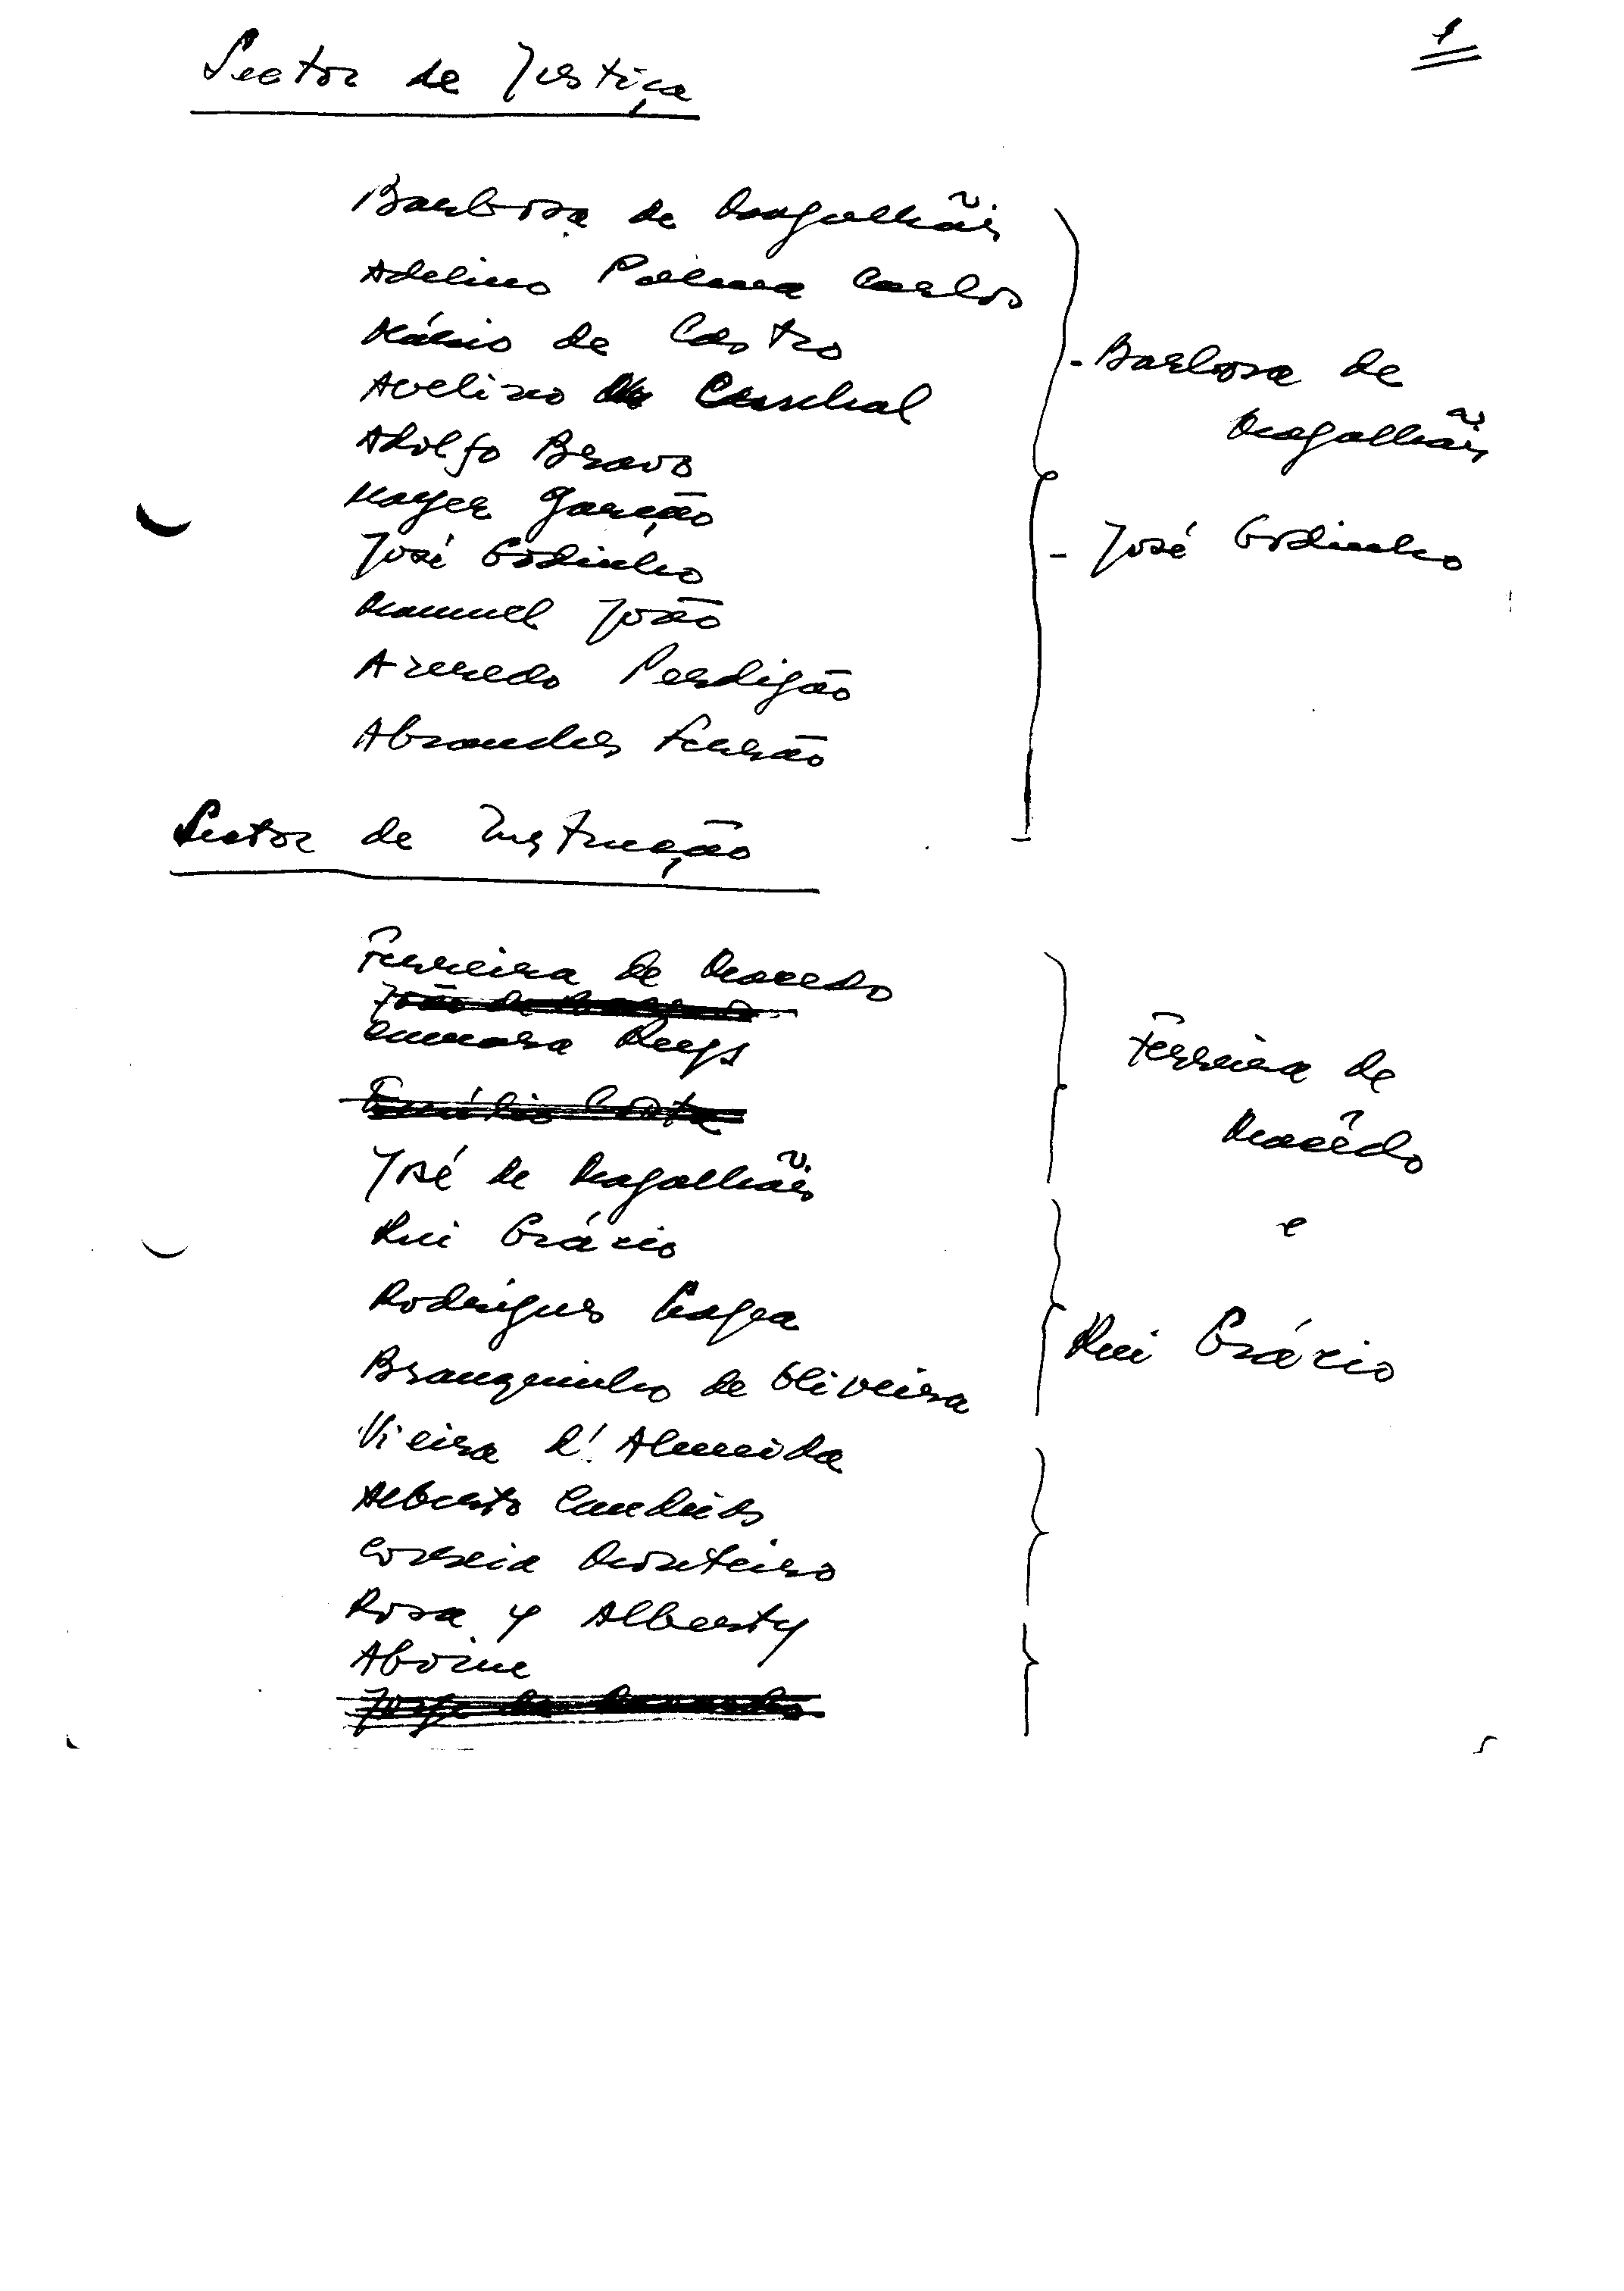 1
Sector de Justiça
Barbosa de Magalhãis
Adelino Palma Carlos
Mário de Castro
Avelino Cunhal
Adolfo Bravo
Mayer Garção
José Godinho
Manuel João
Azeredo Perdigão
Abranches Ferrão
- Barbosa de
Magalhãis
- José Godinho
Sector de Instrução
Ferreira de Macedo
Câmara Reys
Emílio Costa
José de Magalhãis
Rui Grácio
Rodrigues Lapa
Branquinho de Oliveira
Vieira d'Almeida
Alberto Candeias
Correia Monteiro
Rosa y Alberty
Aboim
Ferreira de
Macêdo
e
Rui Grácio